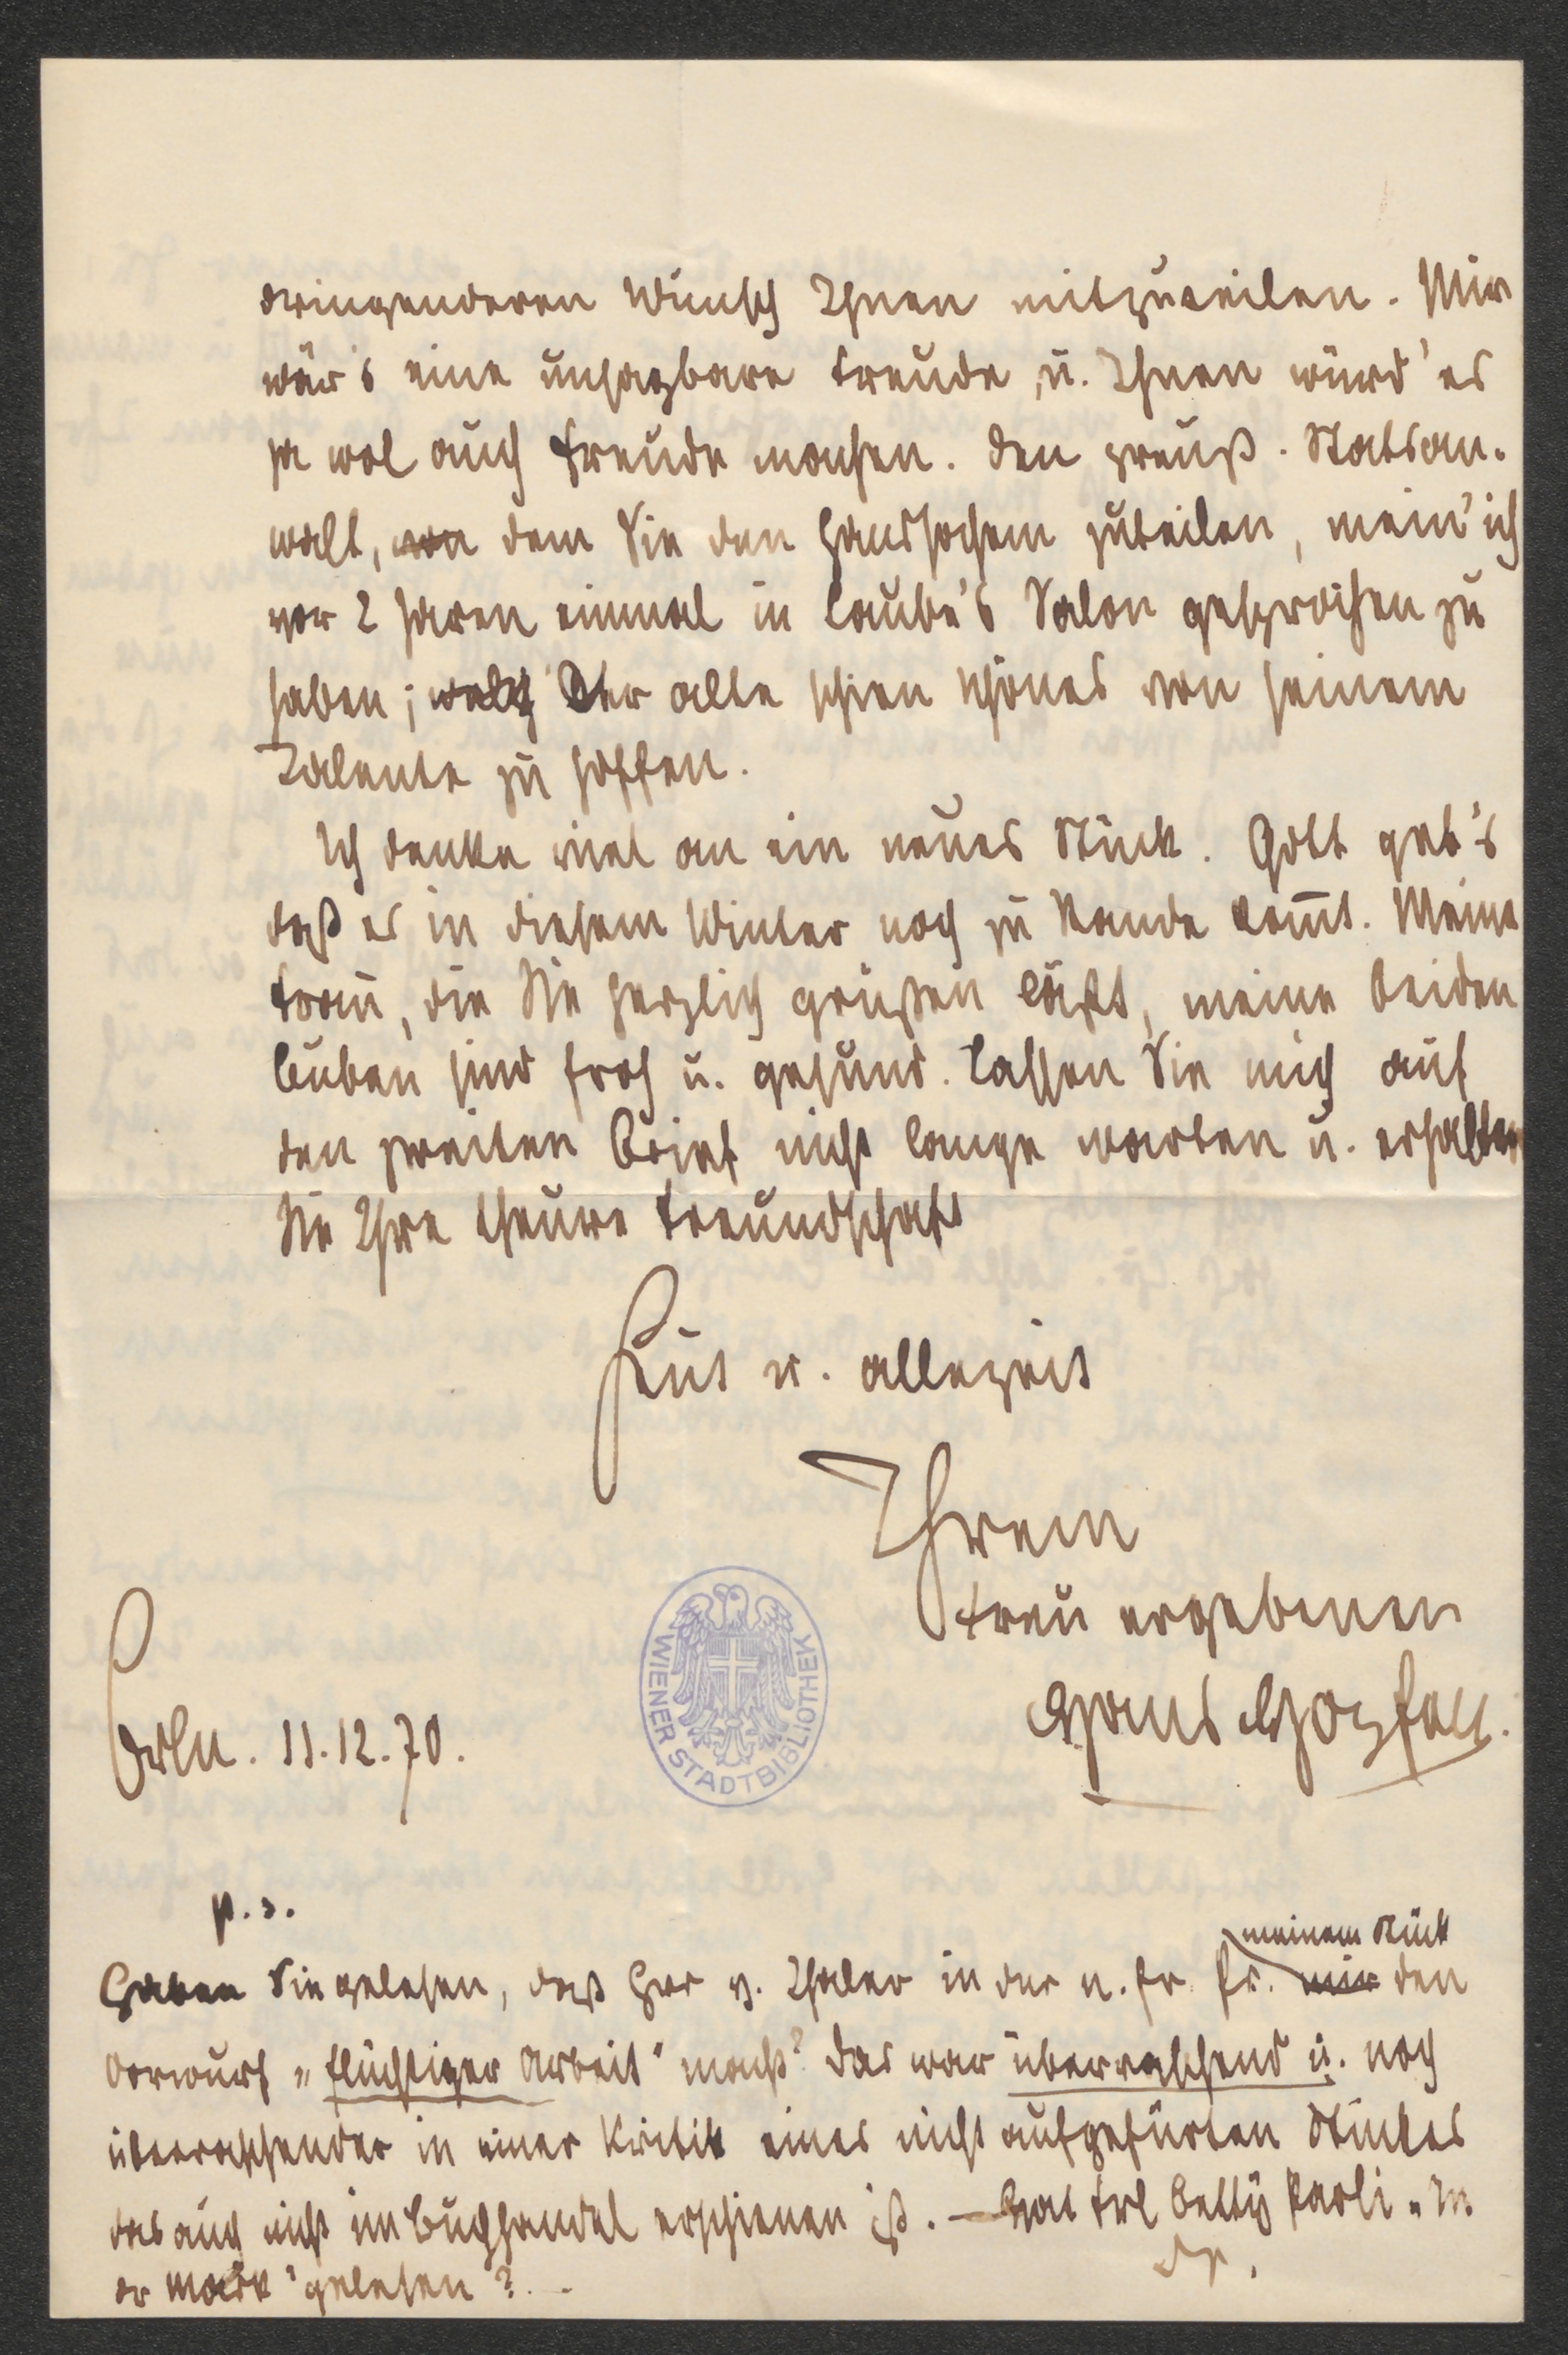 dringenderen Wunsch Ihnen mitzuteilen. Mir
wär's eine unsagbare Freude, u. Ihnen würd' es
ja wol auch Freude machen. Den preuß. Statsan-
walt, von dem Sie den Hans Sachsen zuteilen, mein' ich
vor 2 Jaren einmal in Laube's Salon gesprochen zu
haben; welch Der alte schien schönes von seinem
Talente zu hoffen.
Ich denke viel an ein neues Stück. Gott geb's
daß es in diesem Winter noch zu Stande kom̄t. Meine
Frau, die Sie herzlich grüßen läßt, meine beiden
Buben sind froh u. gesund. Lassen Sie mich auf
den zweiten Brief nicht lange warten u. erhalten
Sie Ihre theure Freundschaft
heut u. allezeit
Ihrem
treu ergebenen
Hans Hopfen.
Brln. 11.12.70.
WIENER STADTBIBLIOTHEK
p.s.
meinem Stück
Haben Sie gelesen, daß Herr v. Thaler in der n. fr. Pr. mir den
Vorwurf „flüchtiger Arbeit" macht? Das war überraschend u. noch
überraschender in einer Kritik eines nicht aufgefürten Stückes
das auch nicht im Buchhandel erschienen ist. – Hat Frl Betty Paoli „In
der Mark" gelesen?